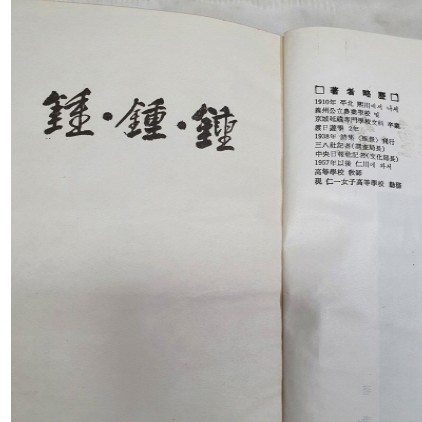 鍾·鍾·鍾
□著者略歷□
1910年 平北 에서 나서
義州公立農業學校 및
京城 專門學校文科 卒業
渡日遊學 2年
1938年 詩集 刊行
三八社記者
中央日報社記者(文化部長)
1957年以後 仁川에 와서
高等學校 敎師
現 仁一女子高等學校 勤務